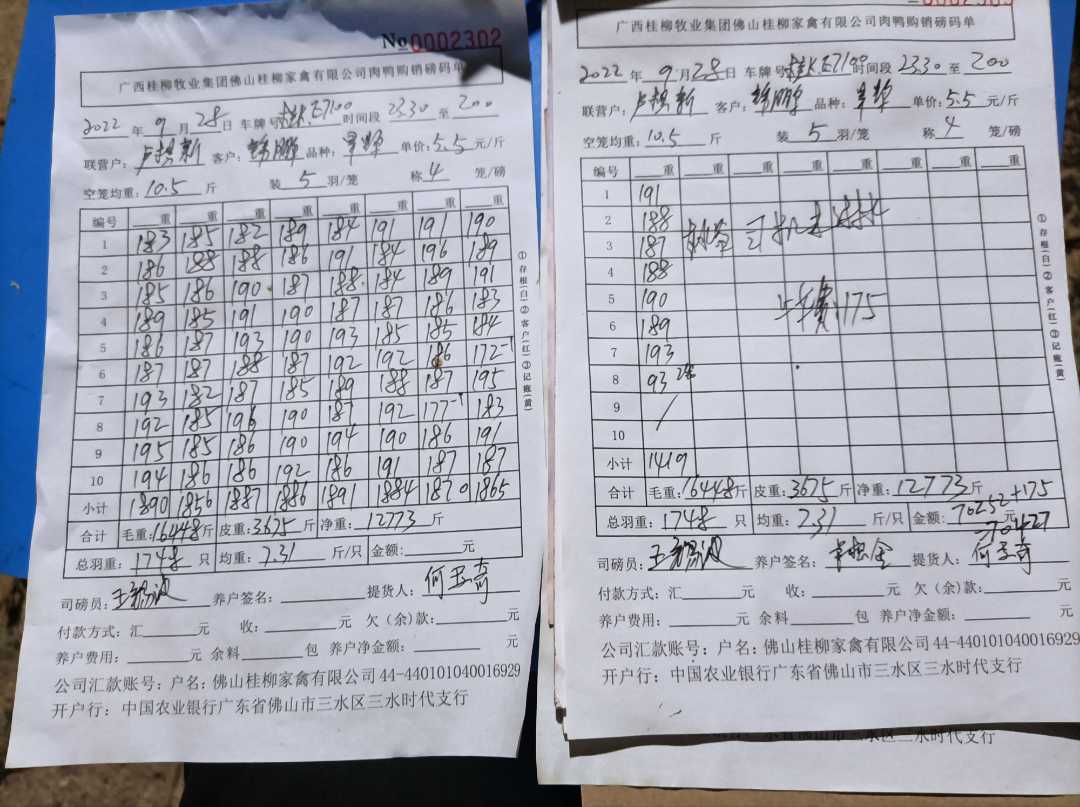 №0002302
广西桂柳牧业集团佛山桂柳家禽有限公司肉鸭购销磅码单
2022年9月28日 车牌号 E7100 时间段 23.30 至 200
联营户: 卢 新 客户: 鹏 品种: 单价: 5.5元/斤
空笼均重: 10.5 斤 装 5 羽/笼 称 4 笼/磅
编号 重 重 重 重 重 重 重 重
1 183 185 182 189 184 191 191 190
2 186 188 188 186 191 184 196 189
3 185 186 190 187 188 184 189 191
4 189 185 191 190 187 187 186 183
5 186 187 193 190 193 185 185 184
6 187 187 188 187 192 192 186 172-1
7 193 182 187 185 189 188 187 195
8 192 185 196 190 187 192 177-1 183
9 195 185 186 190 194 190 186 191
10 194 186 186 192 186 191 187 187
小计 1890 1856 1887 1886 1891 1884 1870 1865
合计 毛重: 16448斤 皮重: 3675斤 净重: 12773斤
总羽重: 1748只 均重: 7.31斤/只 金额: 元
司磅员: 王 波 养户签名: 提货人: 何 奇
付款方式: 汇 元 收: 元 欠(余)款: 元
养户费用: 元 余料 包 养户净金额: 元
公司汇款账号: 户名: 佛山桂柳家禽有限公司44-440101040016929
开户行: 中国农业银行广东省佛山市三水区三水时代支行
①存根(白)②客户(红)③记账(黄)
广西桂柳牧业集团佛山桂柳家禽有限公司肉鸭购销磅码单
2022年9月28日 车牌号 E7100 时间段 23.30 至 200
联营户: 卢 新 客户: 鹏 品种: 单价: 5.5元/斤
空笼均重: 10.5 斤 装 5 羽/笼 称 4 笼/磅
编号 重 重 重 重 重 重 重 重
1 191
2 188
3 187
4 188
5 190
费 175
6 189
7 193
8 93 2笼
9 /
10
小计 1419
合计 毛重: 16448斤 皮重: 3675斤 净重: 12773斤
总羽重: 1748只 均重: 7.31斤/只 金额: 70252+175元
70427
司磅员: 王 波 养户签名: 全 提货人: 何 奇
付款方式: 汇 元 收: 元 欠(余)款: 元
养户费用: 元 余料 包 养户净金额: 元
公司汇款账号: 户名: 佛山桂柳家禽有限公司44-440101040016929
开户行: 中国农业银行广东省佛山市三水区三水时代支行
①存根(白)②客户(红)③记账(黄)
三水区三水时代支行